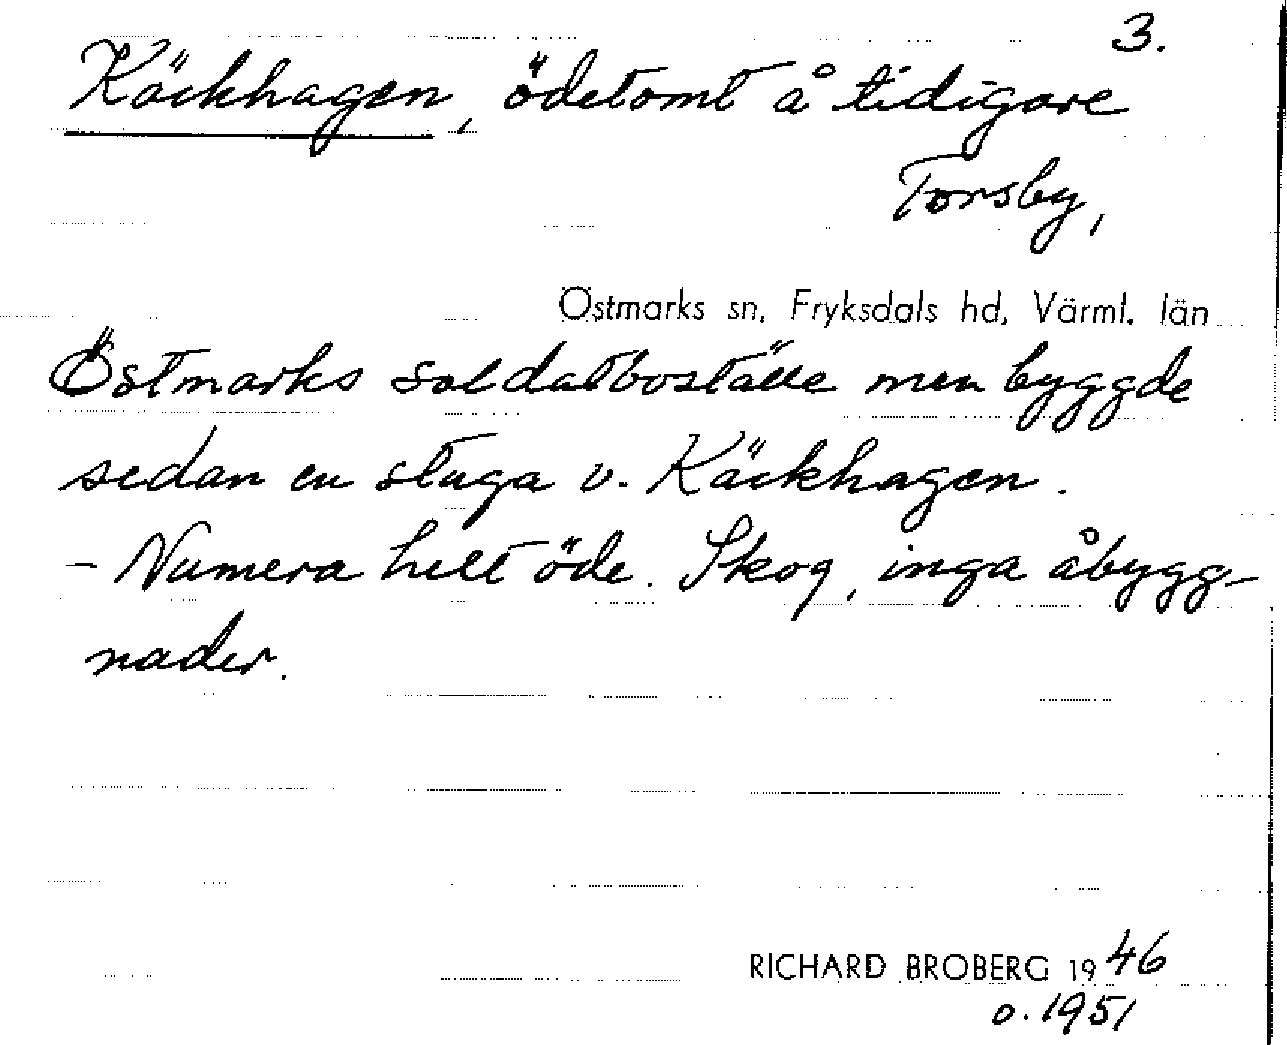 3.
Käckhagen, ödetomt å tidigare
Torsby,
Östmarks sn, Fryksdals hd, Värml. län
Östmarks soldatboställe men byggde
sedan en stuga v. Käckhagen.
- Numera helt öde. Skog, inga åbygg-
nader.
RICHARD BROBERG 1946
o. 1951